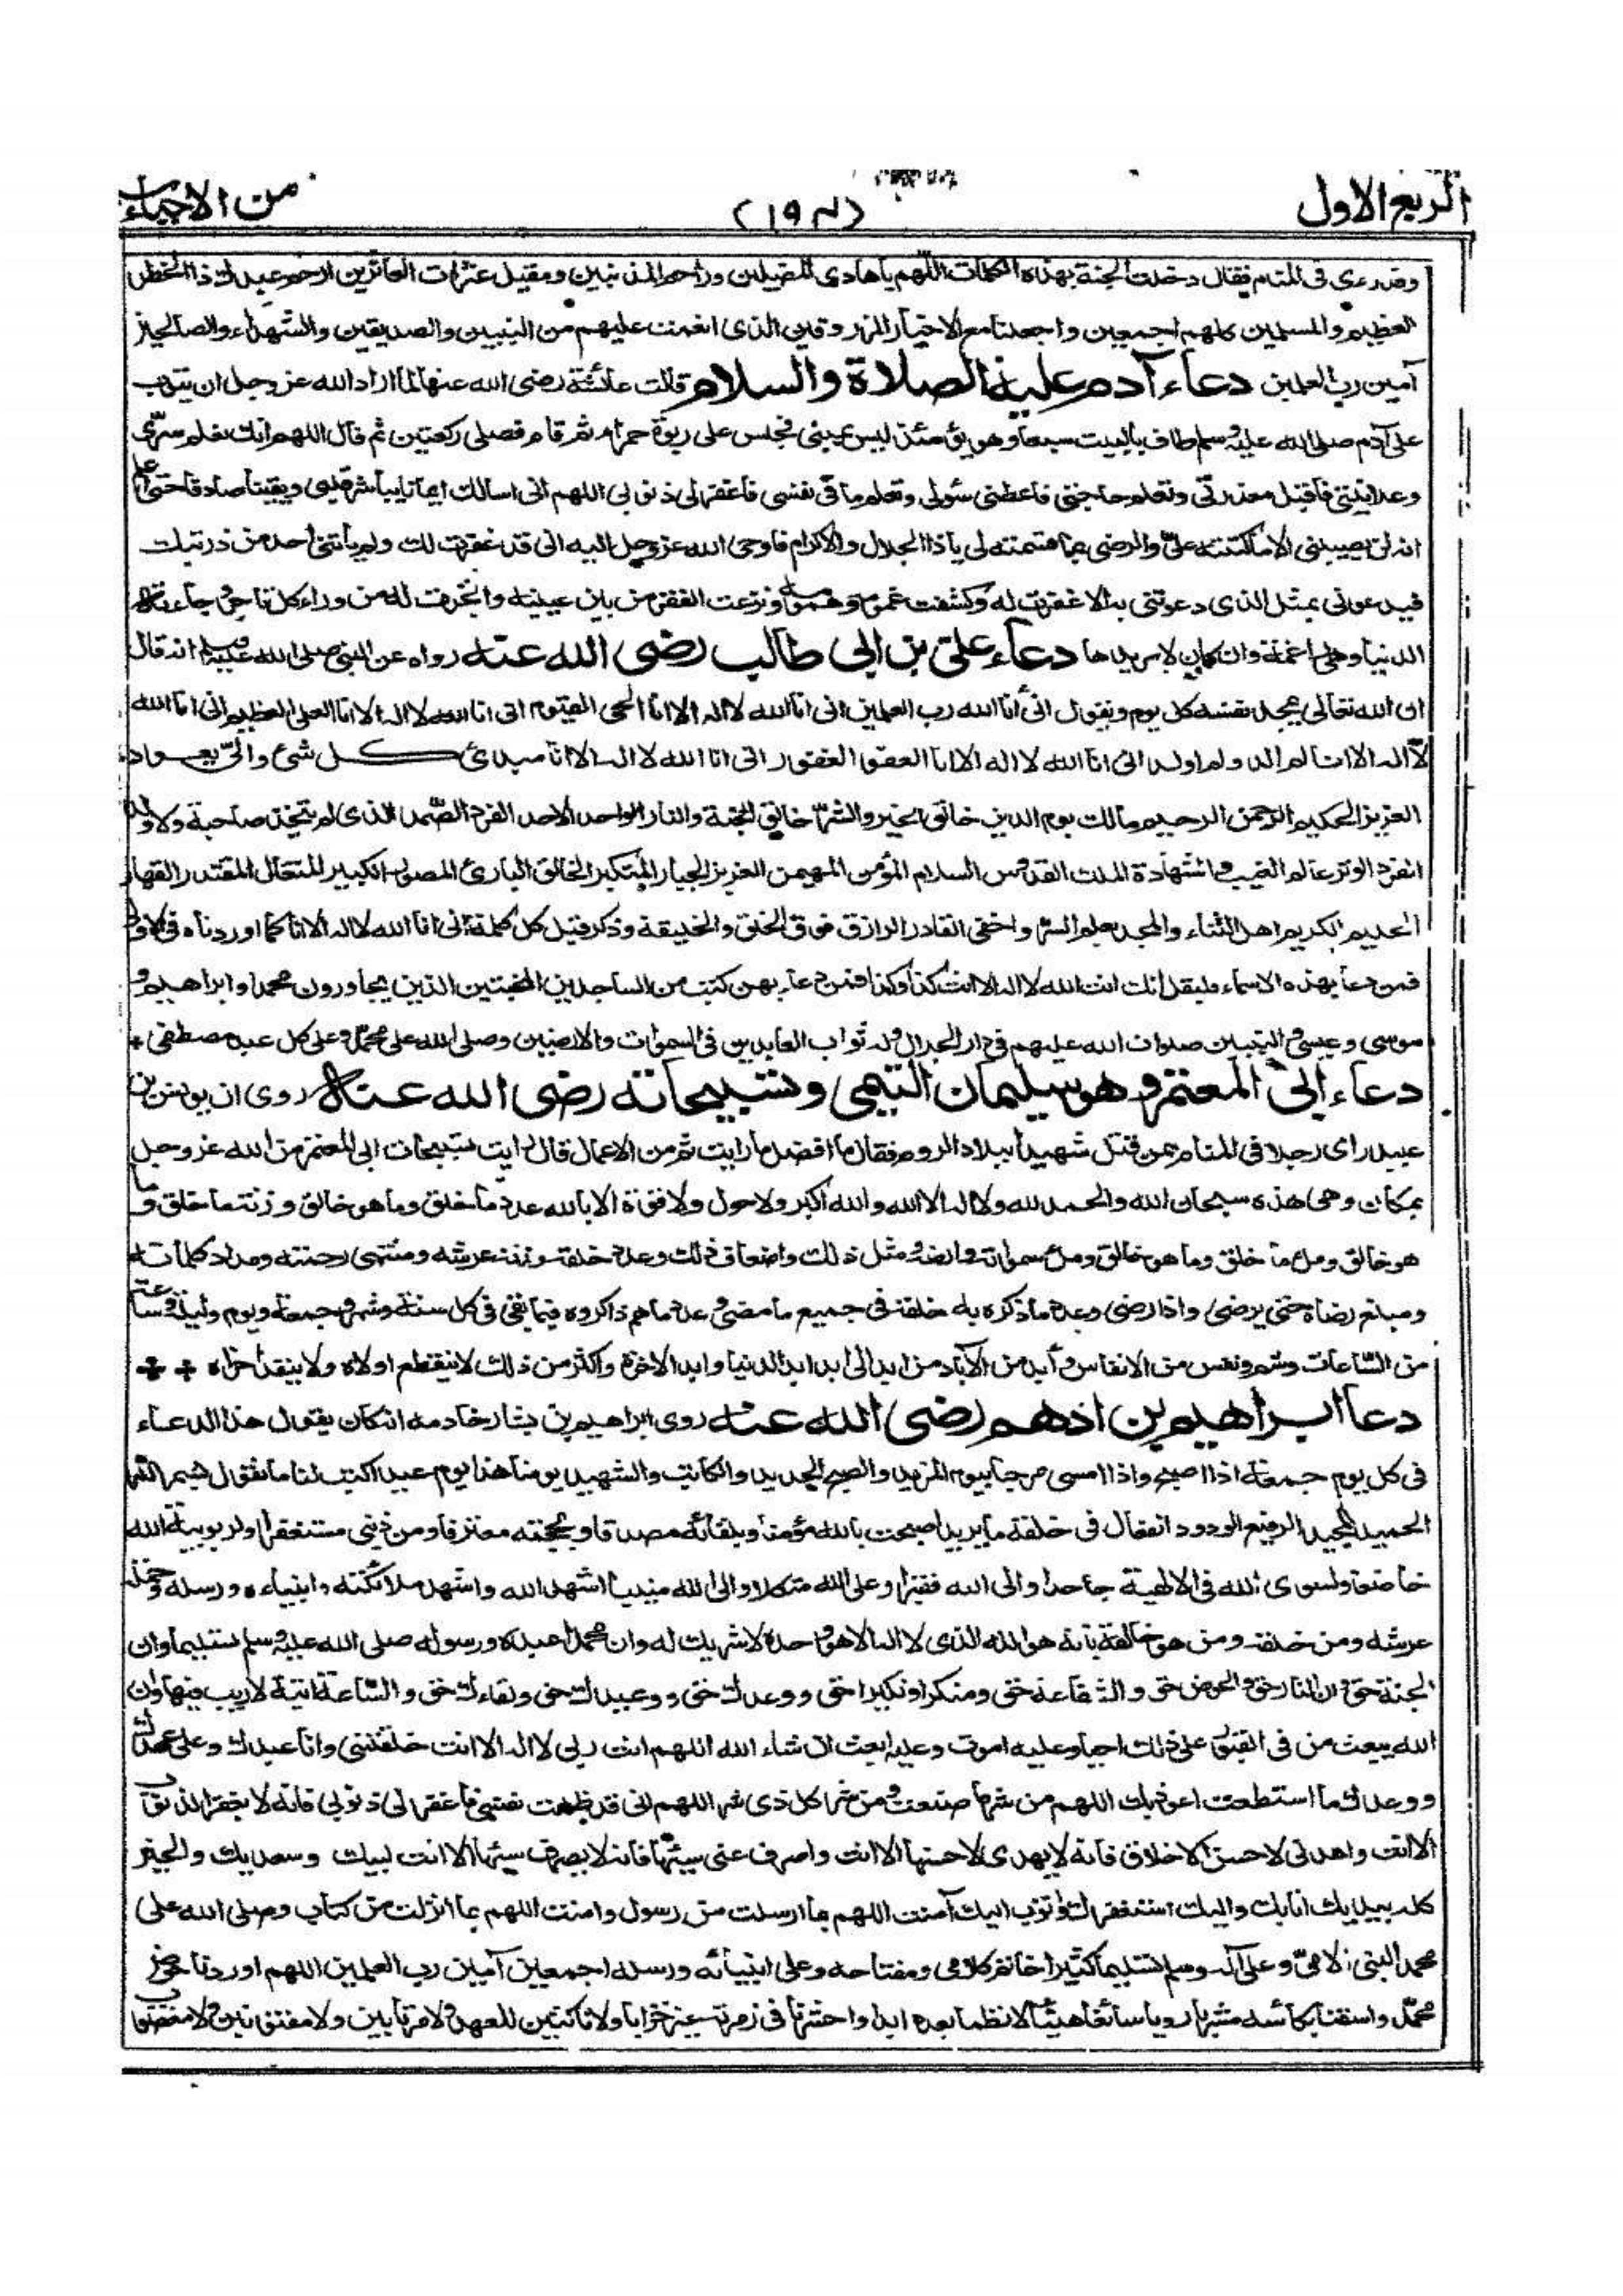 الربع الاول
من الاحياء
وقد رءى فى المنام فقال دخلت الجنة بهذه الكلمات اللهم يا هادى المضلين وراحم المذنبين ومقيل عثرات العاثرين ارحم عبدك ذا الخطر
العظيم والمسلمين كلهم اجمعين واجعلنا مع الاخيار المرزوقين الذى انعمت عليهم من النبيين والصديقين والشهداء والصالحين
آمين رب العلمين دعاء آدم عليه الصلاة والسلام قالت عائشة رضى الله عنها لما اراد الله عز وجل ان يتوب
على آدم صلى الله عليه وسلم طاف بالبيت سبعا وهو يومئذ ليس بمبنى فجلس على ربوة حمراء ثم قام فصلى ركعتين ثم قال اللهم انك تعلم سرى
وعلانيتى فاقبل معذرتى وتعلم حاجتى فاعطنى سؤلى وتعلم ما فى نفسى فاغفر لى ذنوبى اللهم انى اسالك ايمانا يباشر قلبى ويقينا صادقا حتى اعلم
انه لن يصيبنى الا ما كتبته على والرضى بما قسمته لى يا ذا الجلال والاكرام فاوحى الله عز وجل اليه انى قد غفرت لك ولم يأتنى احد من ذريتك
فيدعونى بمثل الذى دعوتنى به الا غفرت له وكشفت غمومه وهمومه ونزعت الفقر من بين عينيه واتجرت له من وراء كل تاجر وجاءته
الدنيا وهى راغمة وان كان لا يريدها دعاء على بن ابى طالب رضى الله عنه رواه عن النبى صلى الله عليه وسلم انه قال
ان الله تعالى يمجد نفسه كل يوم ويقول انى أنا الله رب العلمين انى انا الله لا اله الا انا الحى القيوم انى انا الله لا اله الا انا العلى العظيم انى انا الله
لا اله الا انا لم الد ولم اولد انى انا الله لا اله الا انا العفو الغفور انى انا الله لا اله الا انا مبدئ كل شئ والى يعود
العزيز الحكيم الرحمن الرحيم مالك يوم الدين خالق الخير والشر خالق الجنة والنار الواحد الاحد الفرد الصمد الذى لم يتخذ صاحبة ولا ولدا
الفرد الوتر عالم الغيب والشهادة الملك القدوس السلام المؤمن المهيمن العزيز الجبار المتكبر الخالق البارئ المصور الكبير المتعال المقتدر القهار
الحليم الكريم اهل الثناء والمجد يعلم السر واخفى القادر الرازق فوق الخلق والخليقة وذكر قبل كل كلمة انى انا الله لا اله الا انا كما اوردناه فى الاول
فمن دعا بهذه الاسماء فليقل انك انت الله لا اله الا انت كذا وكذا فمن دعا بهن كتب من الساجدين المخبتين الذين يجاورون محمدا وابراهيم و
موسى وعيسى والنبيين صلوات الله عليهم فى دار الجلال وله ثواب العابدين فى السموات والارضين وصلى الله على محمد وعلى كل عبد مصطفى
دعاء ابى المعتمر وهو سليمان التيمى وتسبيحاته رضى الله عنه روى ان يونس بن
عبيد راى رجلا فى المنام ممن قتل شهيدا ببلاد الروم فقال ما افضل ما رايت ثم من الاعمال قال رايت تسبيحات ابى المعتمر من الله عز وجل
بمكان وهى هذه سبحان الله والحمد لله ولا اله الا الله والله اكبر ولا حول ولا قوة الا بالله عدد ما خلق وما هو خالق وزنة ما خلق وما
هو خالق وملء ما خلق وما هو خالق وملء سمواته وارضه ومثل ذلك واضعاف ذلك وعدد خلقه وزنة عرشه ومنتهى رحمته ومداد كلماته
ومبلغ رضاه حتى يرضى واذا رضى وعدد ما ذكره به خلقه فى جميع ما مضى وعدد ما هم ذاكروه فيما بقى فى كل سنة وشهر وجمعة ويوم وليلة وساعة
من الساعات وشم ونفس من الانفاس وأبد من الآباد من ابد الى ابد ابد الدنيا وابد الاخرة واكثر من ذلك لا ينقطع اولاه ولا ينفد أخراه
دعا ابراهيم بن ادهم رضى الله عنه روى ابراهيم بن بشار خادمه انه كان يقول هذا الدعاء
فى كل يوم جمعة اذا اصبح واذا امسى مرحبا بيوم المزيد والصبح الجديد والكاتب والشهيد يومنا هذا يوم عيد اكتب لنا ما نقول بسم الله
الحميد المجيد الرفيع الودود الفعال فى خلقه ما يريد اصبحت بالله مؤمنا وبلقائه مصدقا وبحجته معترفا ومن ذنبى مستغفرا ولربوبية الله
خاضعا ولسوى الله فى الالهية جاحدا والى الله فقيرا وعلى الله متكلا والى الله منيبا اشهد الله واشهد ملائكته وانبياءه ورسله وحملة
عرشه ومن خلقه ومن هو خالقه بانه هو الله الذى لا اله الا هو وحده لا شريك له وان محمدا عبده ورسوله صلى الله عليه وسلم تسليما وان
الجنة حق وان النار حق والحوض حق والشفاعة حق ومنكرا ونكيرا حق ووعدك حق ووعيدك حق ولقاءك حق والساعة اتية لا ريب فيها وان
الله يبعث من فى القبور على ذلك احيا وعليه اموت وعليه ابعث ان شاء الله اللهم انت ربى لا اله الا انت خلقتنى وانا عبدك وعلى عهدك
ووعدك ما استطعت اعوذ بك اللهم من شر ما صنعت ومن شر كل ذى شر اللهم انى قد ظلمت نفسى فاغفر لى ذنوبى فانه لا يغفر الذنوب
الا انت واهدنى لاحسن الاخلاق فانه لا يهدى لاحسنها الا انت واصرف عنى سيئها فانه لا يصرف سيئها الا انت لبيك وسعديك والخير
كله بيديك انا بك واليك استغفرك واتوب اليك آمنت اللهم بما ارسلت من رسول وامنت اللهم بما انزلت من كتاب وصلى الله على
محمد النبى الامى وعلى آله وسلم تسليما كثيرا خاتم كلامى ومفتاحه وعلى انبيائه ورسله اجمعين آمين رب العلمين اللهم اوردنا حوض
محمد واسقنا بكأسه مشربا رويا سائغا هنيئا لا نظما بعده ابدا واحشرنا فى زمرته غير خزايا ولا ناكثين للعهد ولا مرتابين ولا مفتونين ولا مغضوب